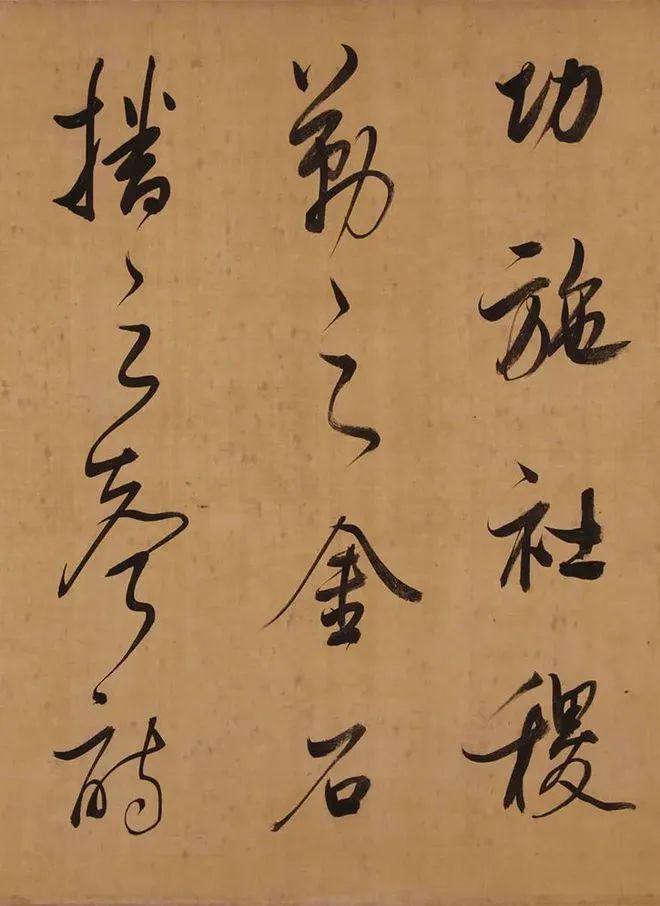 功施社稷
勒之金石
播之聲詩